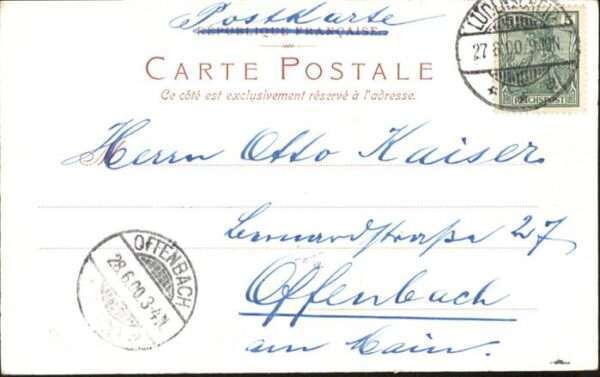 Postkarte
RÉPUBLIQUE FRANÇAISE
CARTE POSTALE
Ce côté est exclusivement réservé à l'adresse.
5
27 6 00 9-10N
REICHSPOST
Herrn Otto Kaiser
Bernardstraße 27
Offenbach
am Main.
OFFENBACH
28.6.00.3-4N